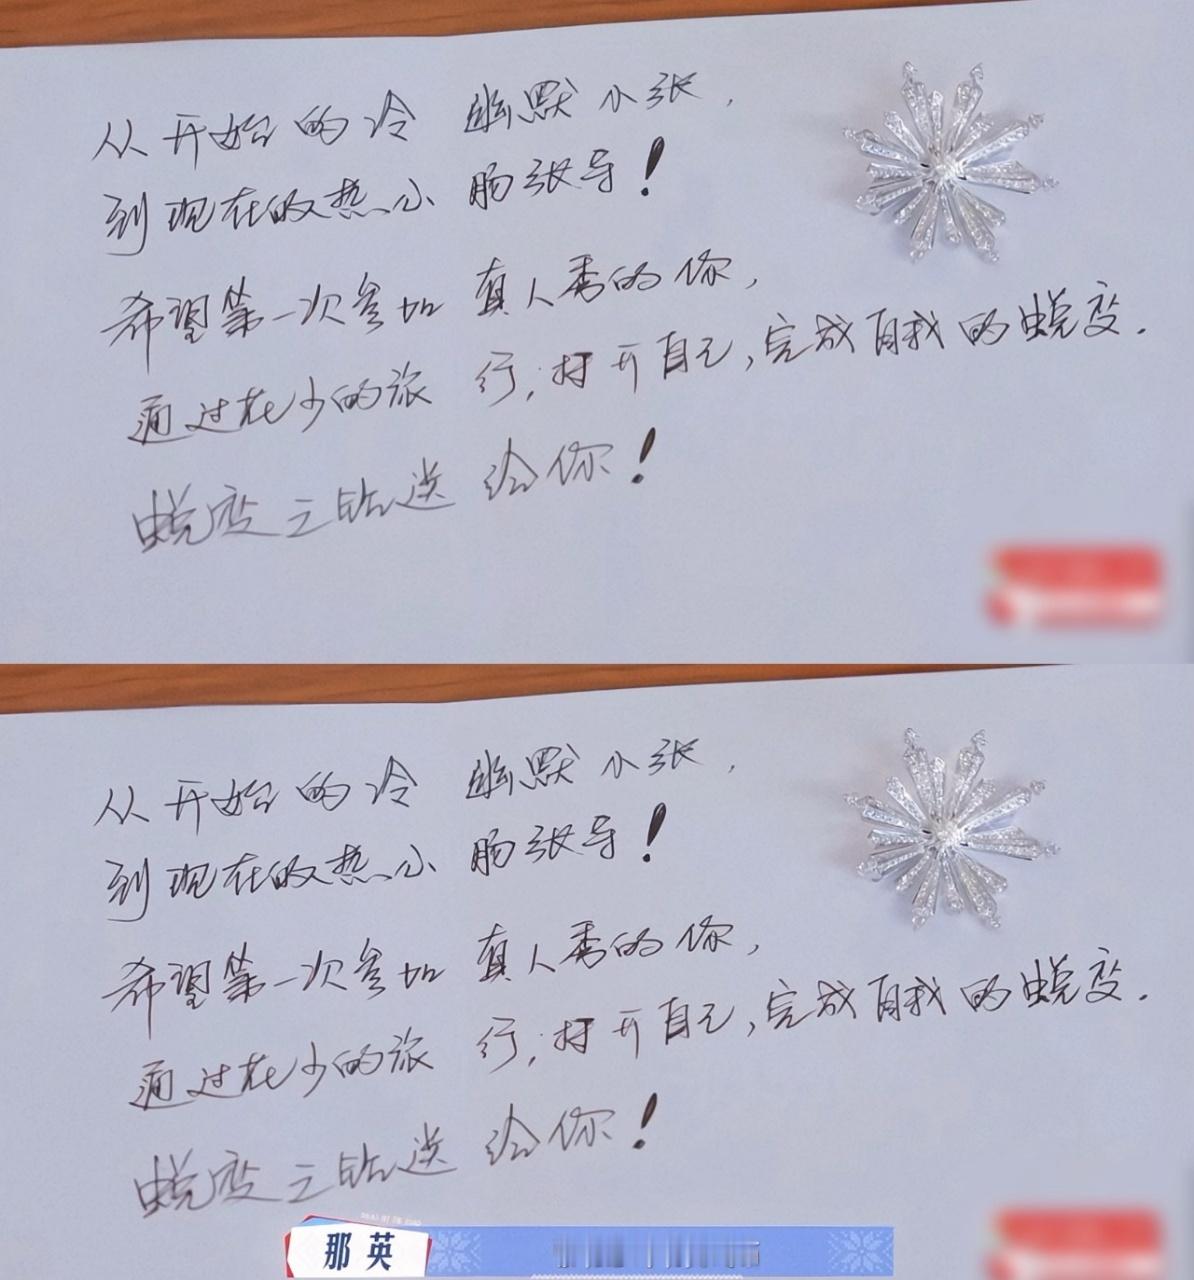 从开始的冷 幽默小张,
到现在的热心 肠张导!
希望第一次参加 真人秀的你,
通过花少的旅 行,打开自己,完成自我的蜕变.
蜕变之钻送 给你!
从开始的冷 幽默小张,
到现在的热心 肠张导!
希望第一次参加 真人秀的你,
通过花少的旅 行,打开自己,完成自我的蜕变.
蜕变之钻送 给你!
那英